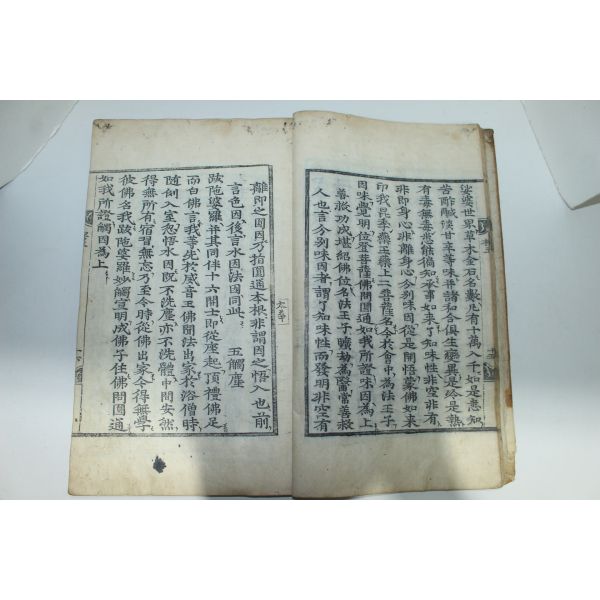 娑婆世界草木金石名數凡有十萬八千如是悉知
苦酢鹹淡甘辛等味并諸和合俱生變異是冷是熱
有毒無毒悉能徧知承事如來了知味性非空非有
非即身心非離身心分別味因從是開悟蒙佛如來
印我昆季藥王藥上二菩薩名今於會中為法王子
因味覺明位登菩薩佛問圓通如我所證味因為上
善救功成堪紹佛位名法王子曠劫為醫常善救
人也言分別味因者謂了知味性而發明非空有
離即之圓因乃指圓通本根非謂因之悟入也前
言色因後言水因法因同此 五觸塵
跋陁婆羅并其同伴十六開士即從座起頂禮佛足
而白佛言我等先於威音王佛聞法出家於浴僧時
隨例入室忽悟水因既不洗塵亦不洗體中間安然
得無所有宿習無忘乃至今時從佛出家令得無學
彼佛名我跋陁婆羅妙觸宣明成佛子住佛問圓通
如我所證觸因為上